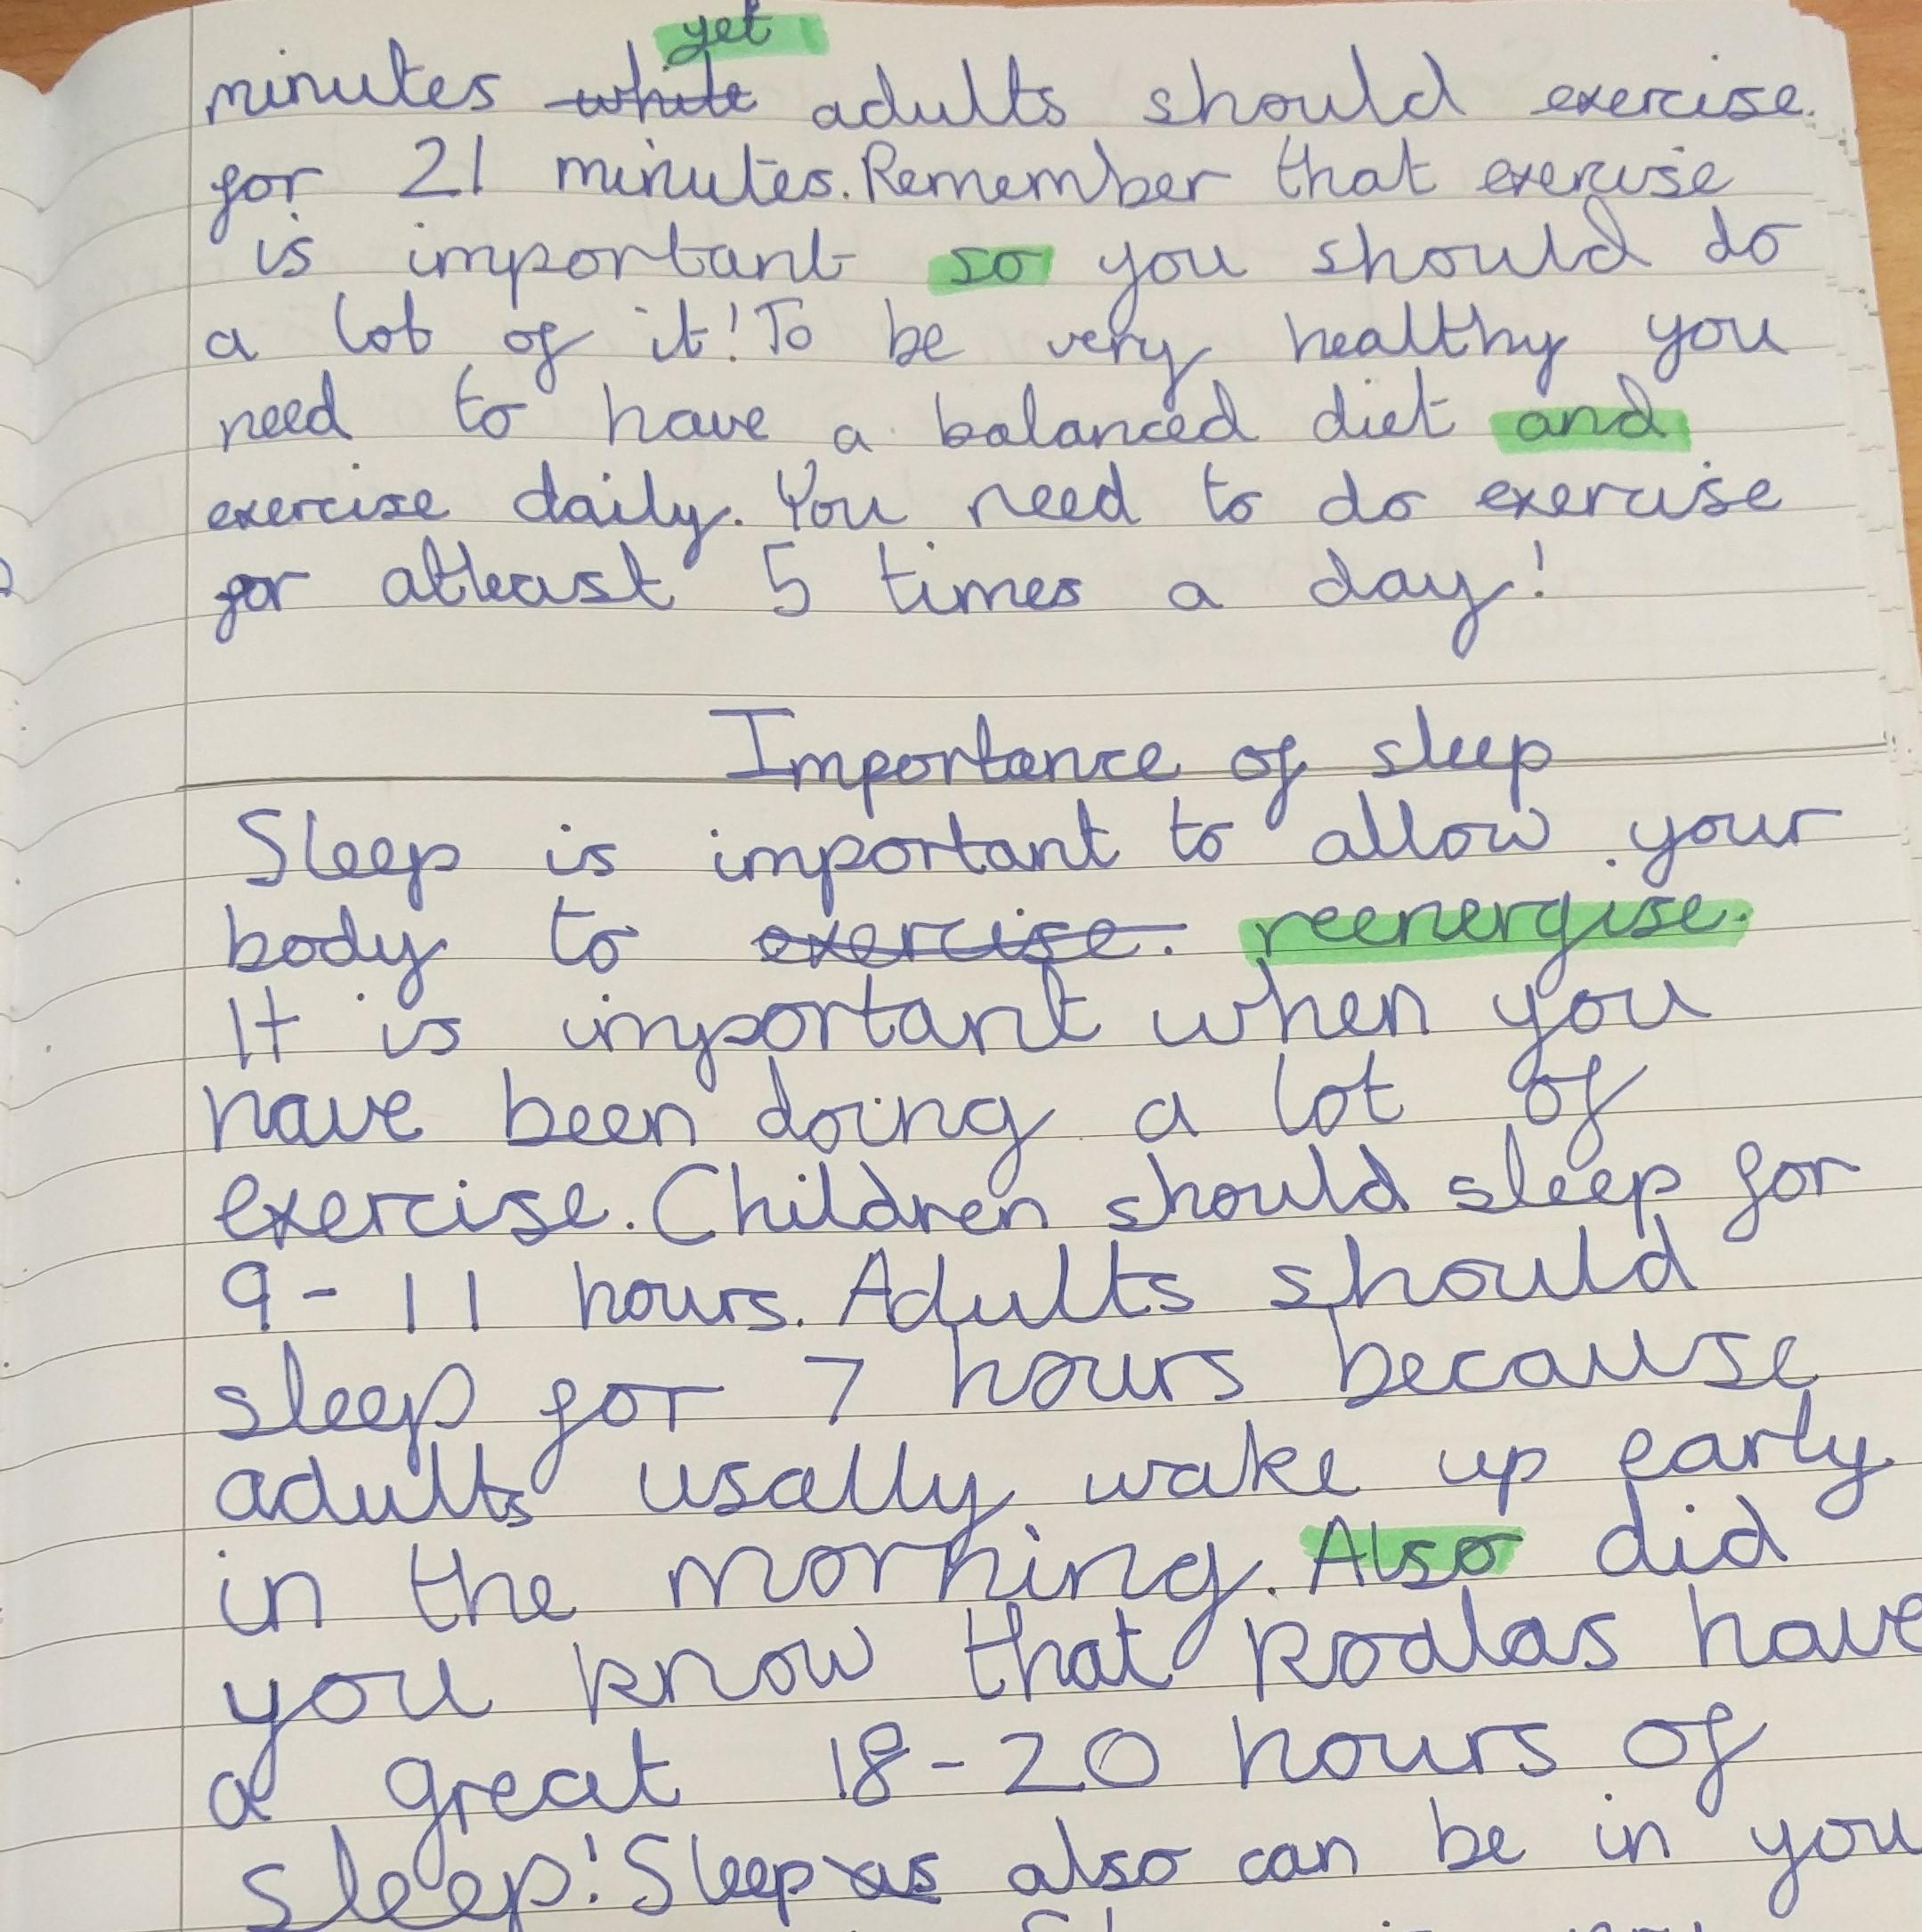 yet
minutes while adults should exercise
for 21 minutes. Remember that exercise
is important so you should do
a lot of it! To be very healthy you
need to have a balanced diet and
exercise daily. You need to do exercise
for atleast 5 times a day!
Importance of sleep
Sleep is important to allow your
body to exercise. reenergise.
It is important when you
have been doing a lot of
exercise. Children should sleep for
9-11 hours. Adults should
sleep for 7 hours because
adults usally wake up early
in the morning. Also did
you know that koalas have
a great 18-20 hours of
sleep! Sleep also can be in you